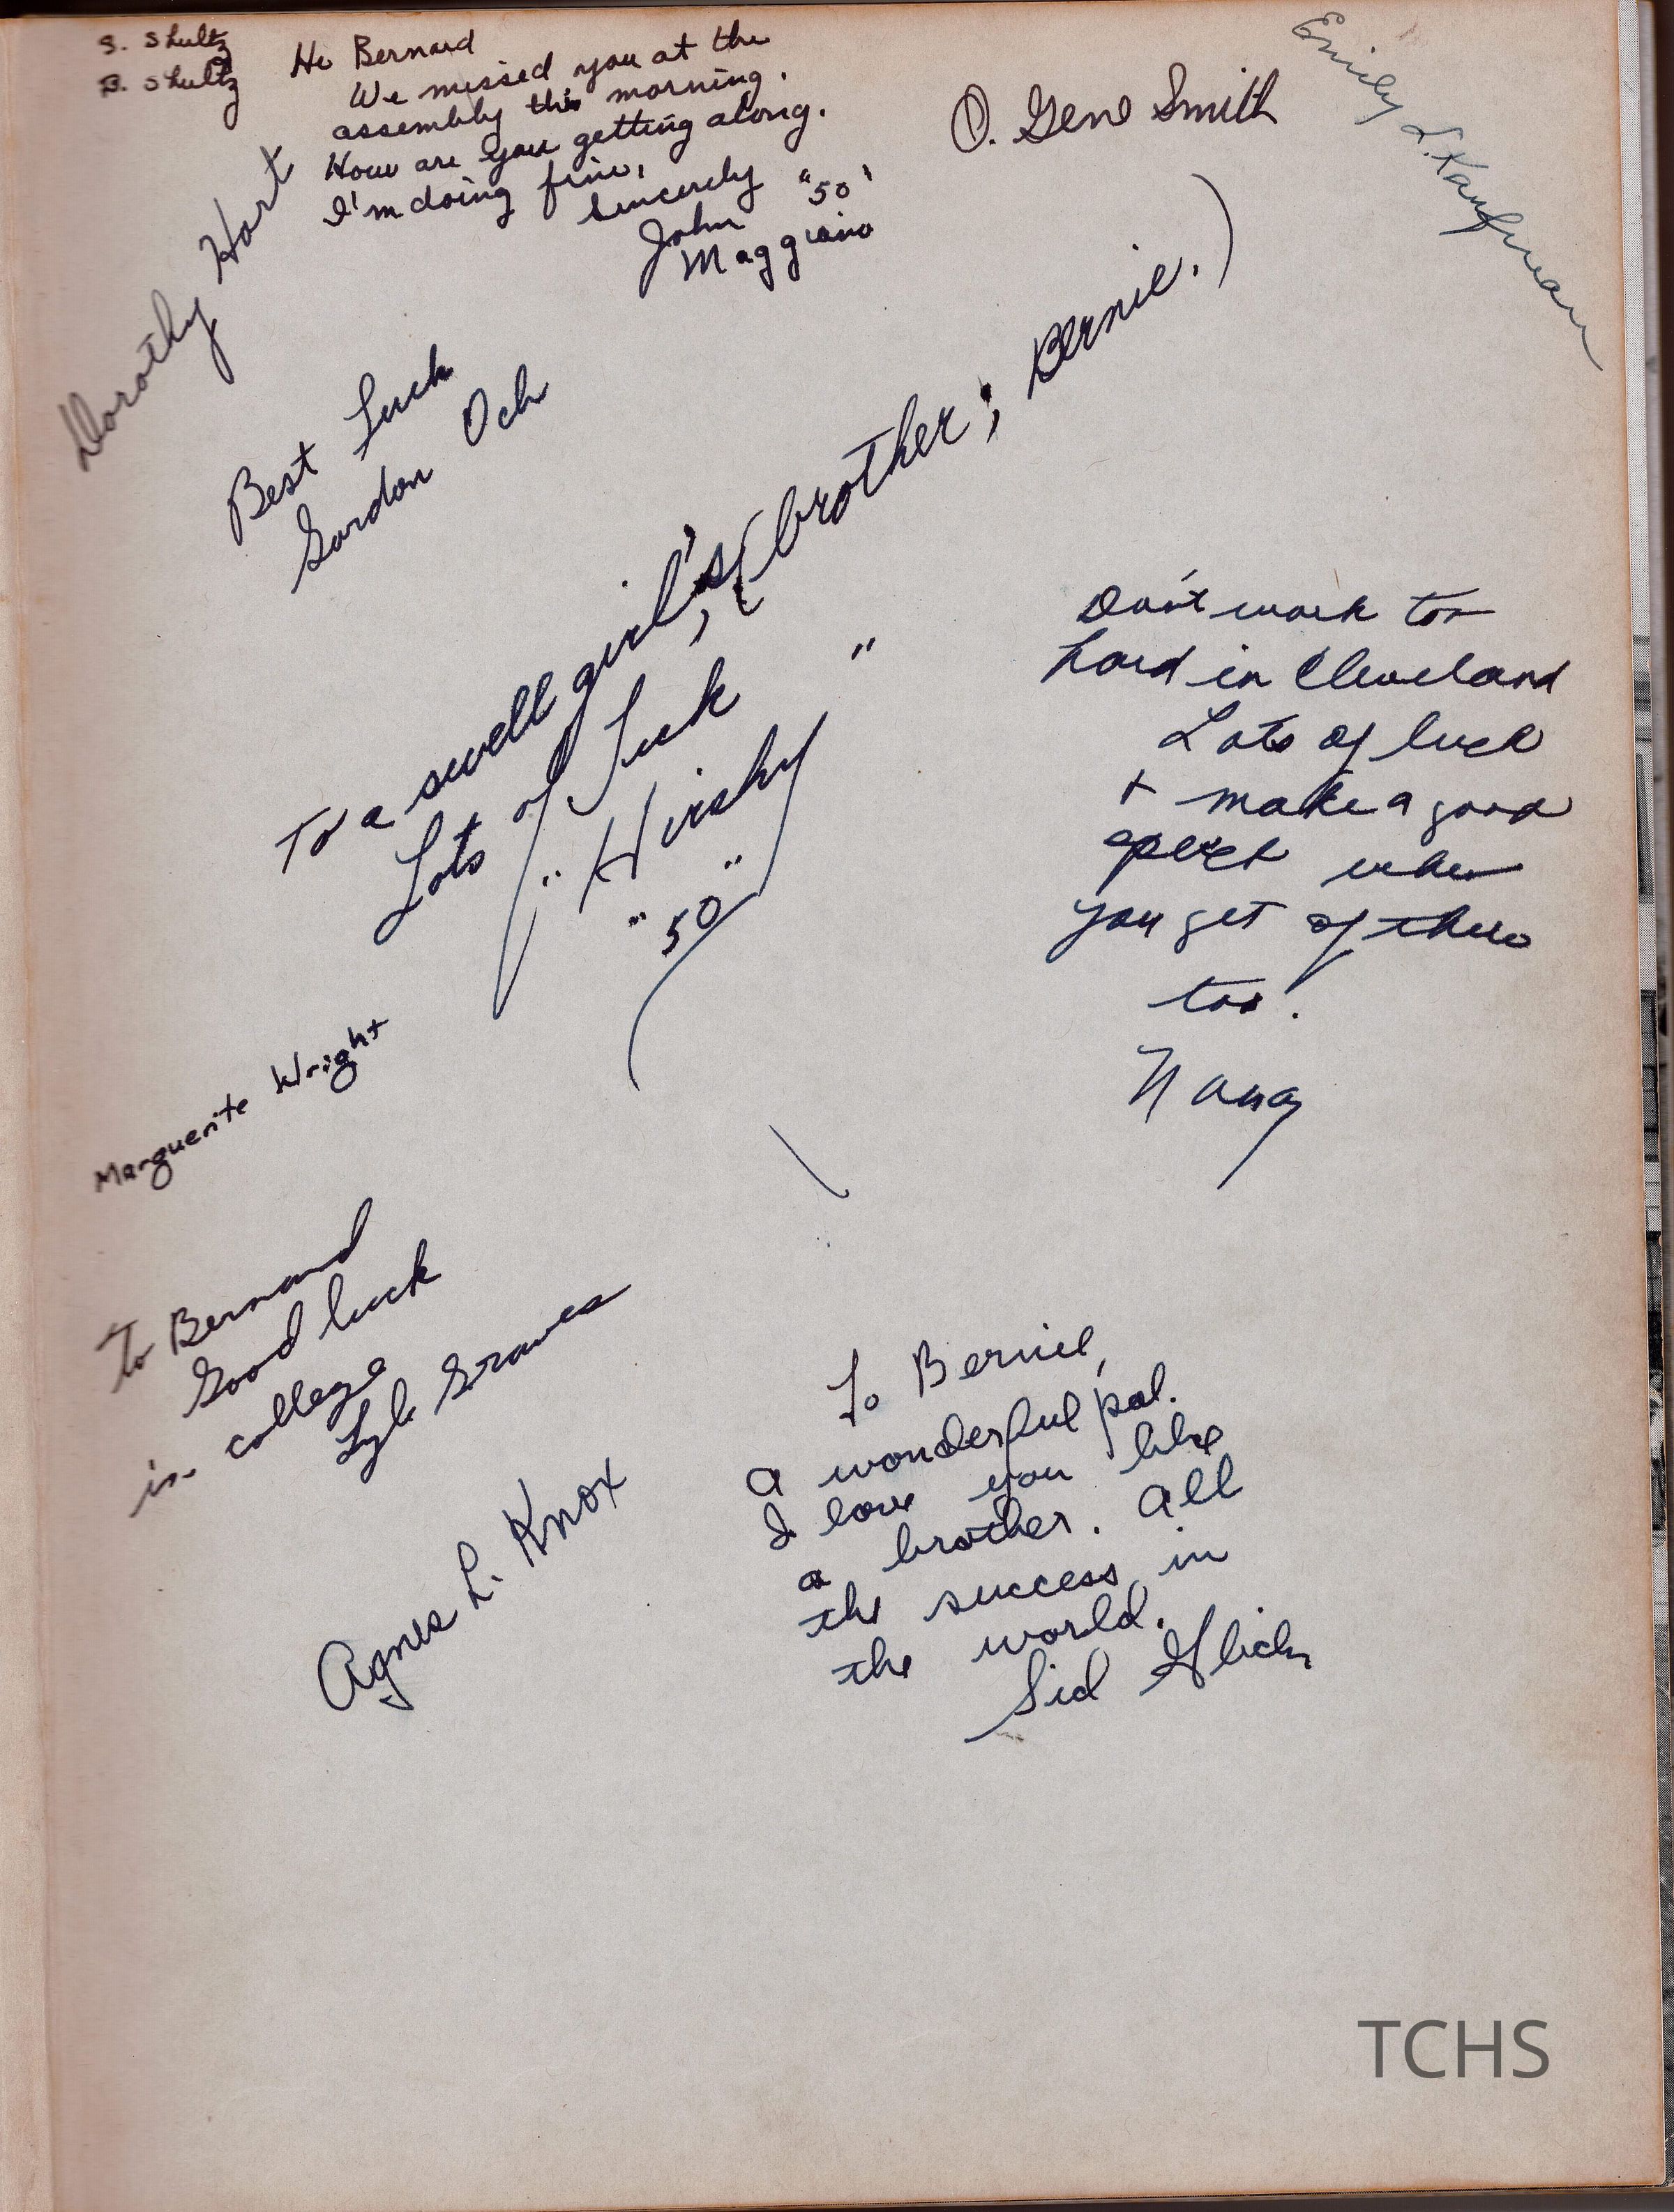 S. Shultz
B. Shultz
Hi Bernard
We missed you at the
assembly this morning.
How are you getting along.
I'm doing fine,
Sincerely
John "50"
Maggiano
O. Gene Smith
Emily L. Kaufman
Dorothy Hart
Best Luck
Gordon Och
To a swell girl's, (brother; Bernie.)
Lots of Luck
"Hirshy"
"50"
Don't work too
hard in Cleveland
Lots of luck
+ make a good
when
you get of there
too!
Nancy
Marguerite Wright
To Bernard
Good luck
in college
Lyle Graves
Agnes L. Knox
To Bernie,
a wonderful pal.
I love you like
a brother. All
the success in
the world.
Sid Glick
TCHS